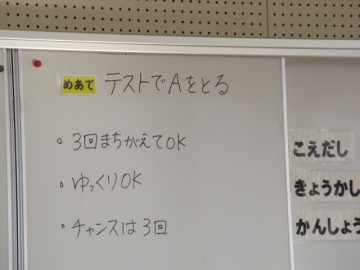 めあて テストでAをとる
。3回まちがえてOK
。ゆっくりOK
。チャンスは3回
こえだし
きょうかし
かんしょう